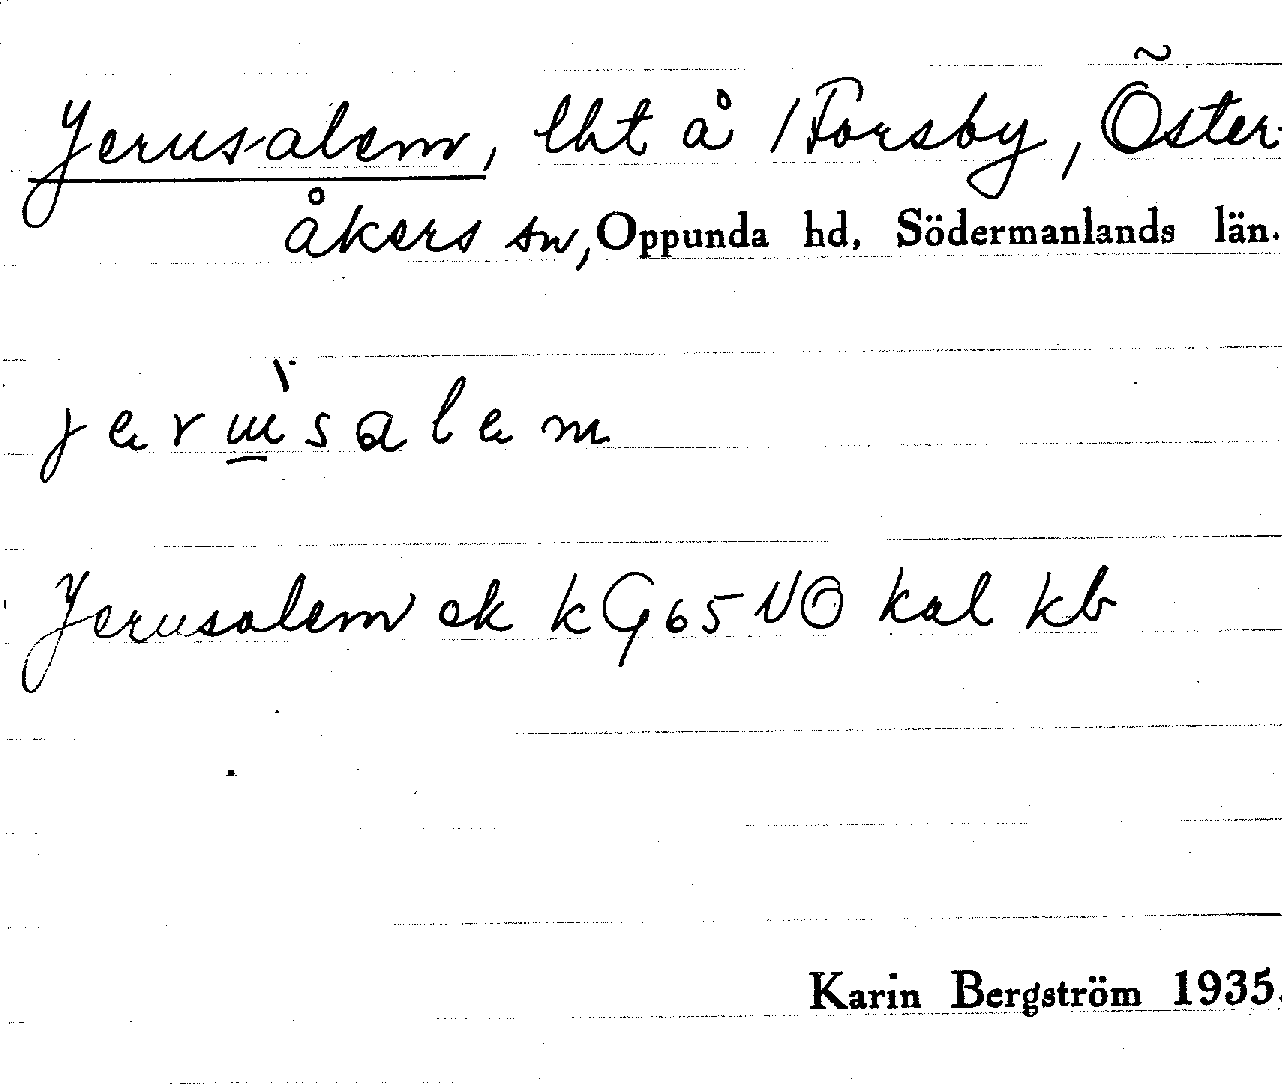 Jerusalem, lht å /Forsby, Öster-
åkers sn, Oppunda hd, Södermanlands län.
jerɯ̲̀salem
Jerusalem ek kG65NO kal kb
Karin Bergström 1935.